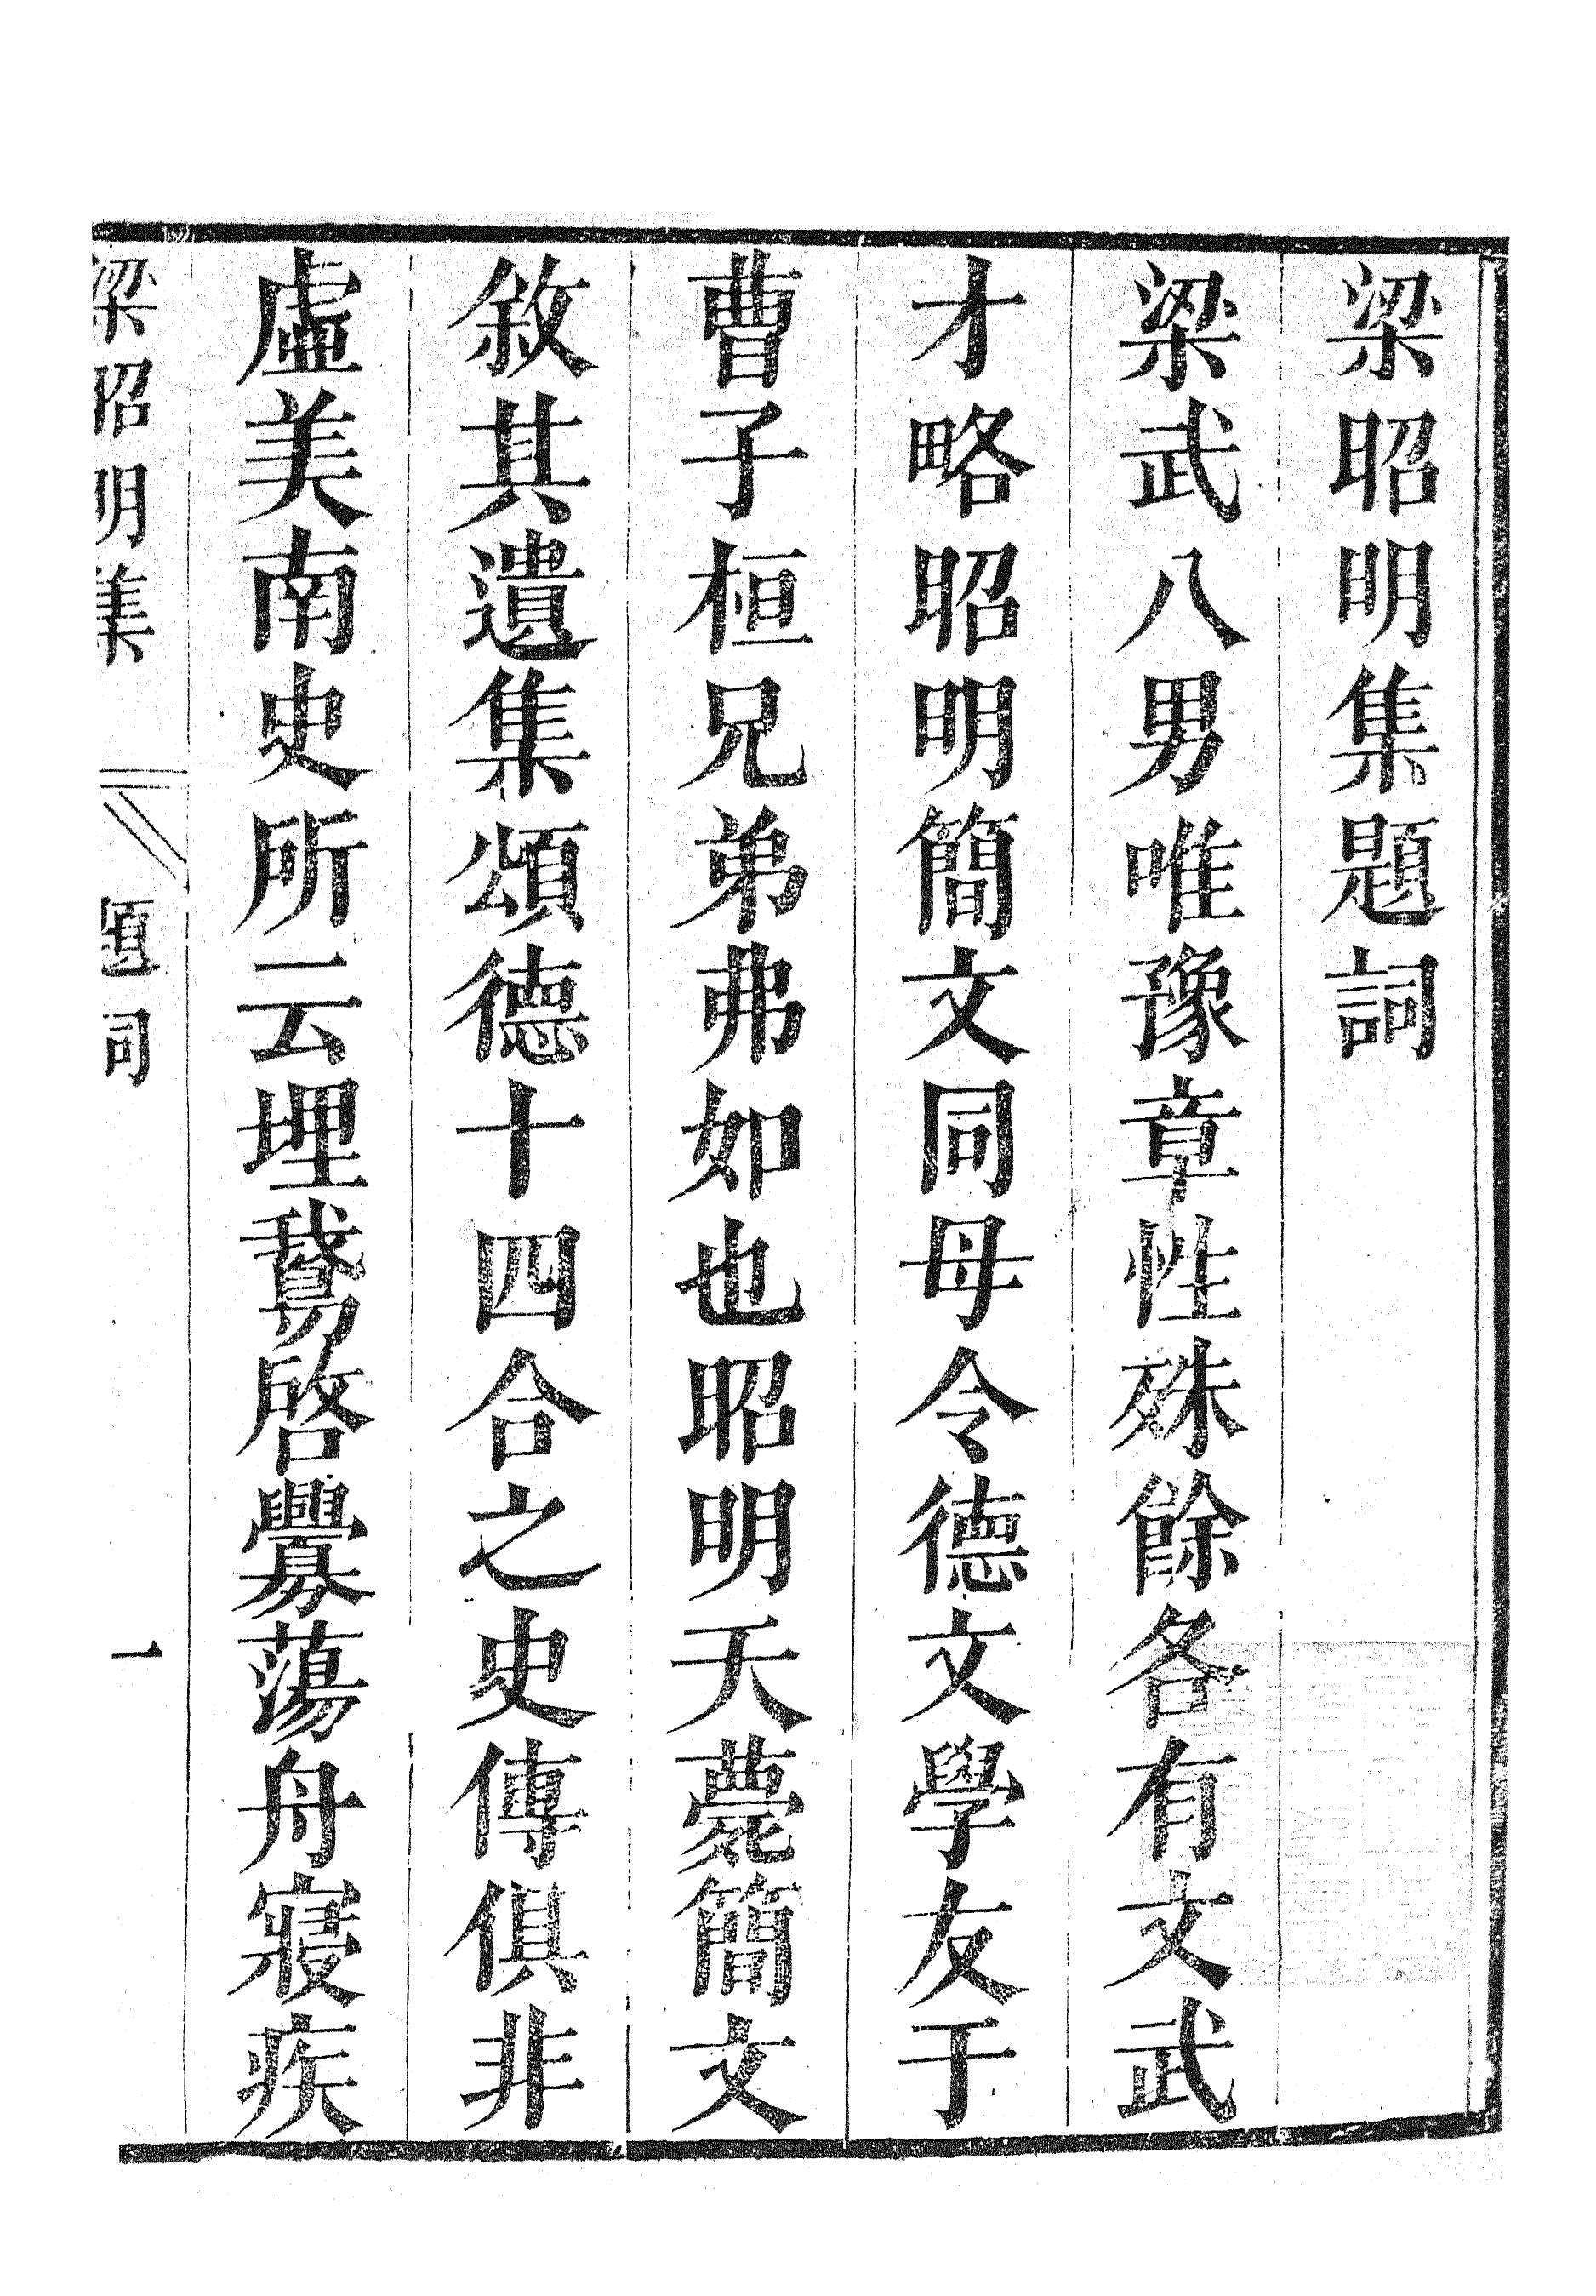 梁昭明集題詞
梁武八男唯豫章性殊餘各有文武
才略昭明簡文同母令德文學友于
曹子桓兄弟弗如也昭明夭薨簡文
敘其遺集頌德十四合之史傳俱非
虛美南史所云埋鵞啓釁蕩舟寢疾
梁昭明集
題詞
一